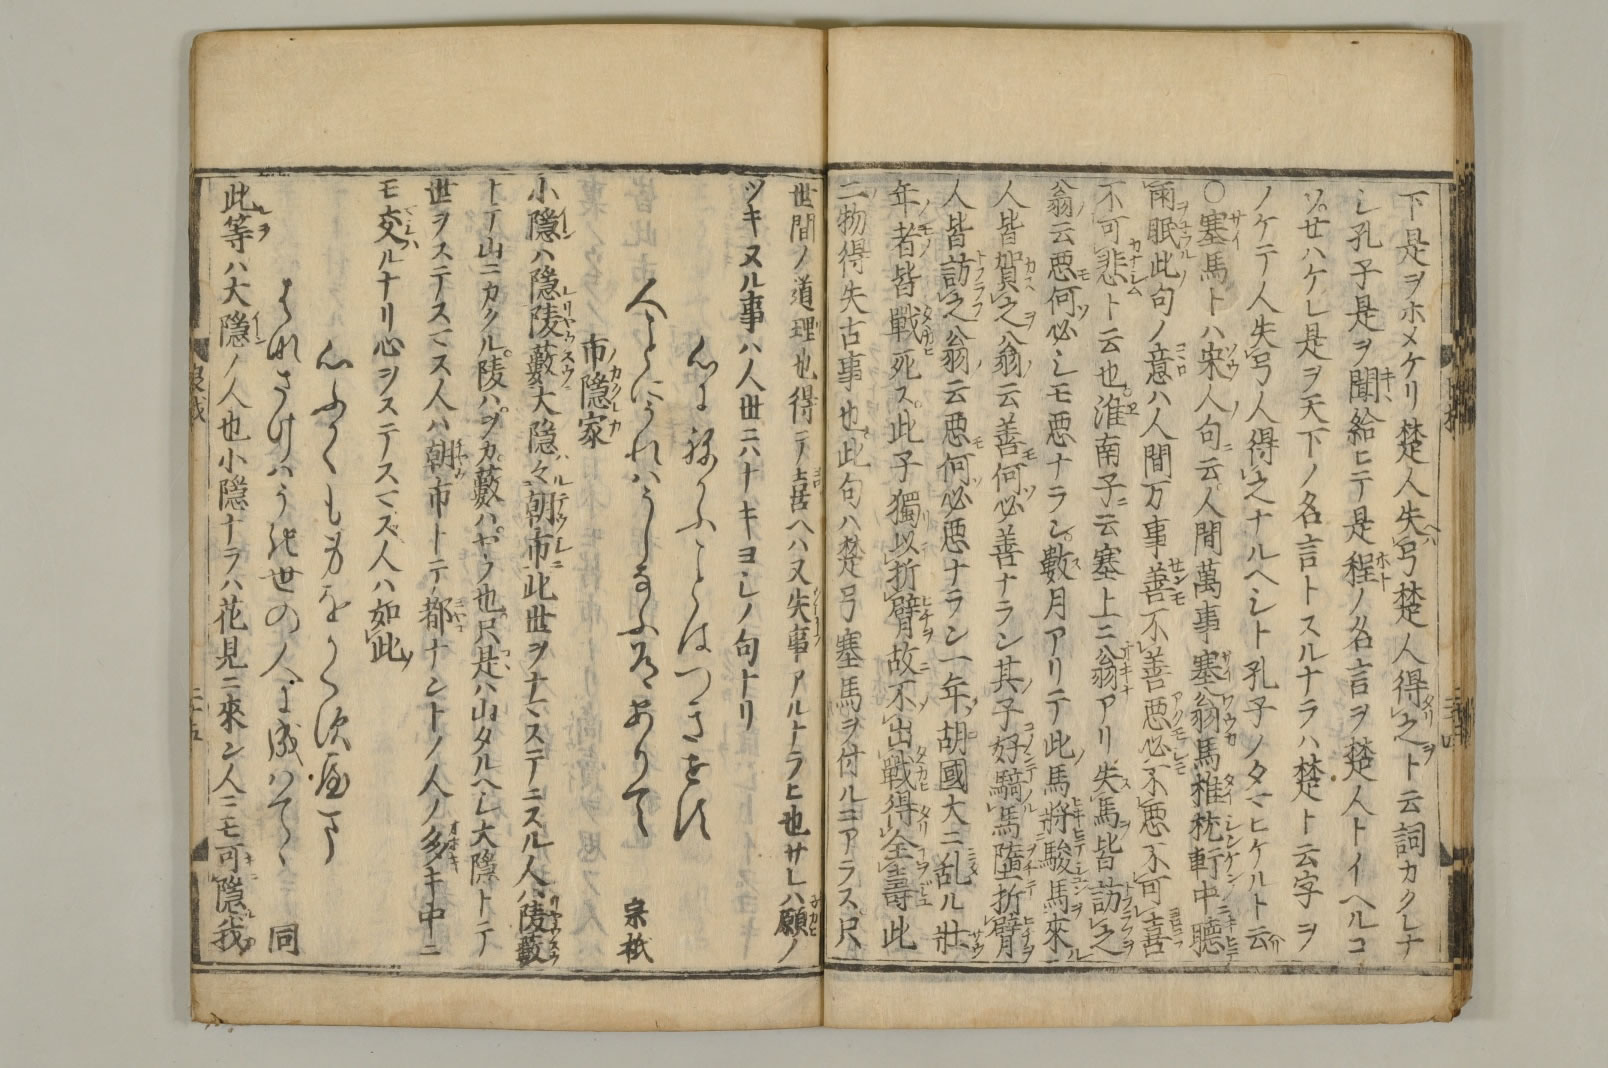 下是ヲホメケリ楚人失弓楚人得之ト云詞カクレナ
シ孔子是ヲ聞給ヒテ是程ノ名言ヲ楚人トイヘルコ
ソセハケレ是ヲ天下ノ名言トスルナラハ楚ト云字ヲ
ノケテ人失弓人得之ナルヘシト孔子ノタマヒケルト云
○塞馬トハ宋人句云人間萬事塞翁馬推枕軒中聴
雨眠此句ノ意ハ人間万事善不善悪必不悪不可喜
不可悲ト云也淮南子云塞上ニ翁アリ失馬皆訪之
翁云悪何必シモ悪ナラン數月アリテ此馬將駿馬來
人皆賀之翁云善何必善ナラン其子好騎馬堕折臂
人皆訪之翁云悪何必悪ナラン一年胡國大ニ乱ル壮
年者皆戰死ス此子獨以折臂故不出戰得全壽此
二物得失古事也此句ハ楚弓塞馬ヲ付ルニアラス只
世間ノ道理也得テ喜ヘハ又失事アルトラヒ也サレハ願ノ
ツキヌル事ハ人世ニハナキヨシノ句トリ
人とにうれはうしなふ習ありて 宗祇
市隠家
小隠ハ隠陵薮大隠々朝市此世ヲナマステニスル人ハ陵薮
トテ山ニカクル陵ハヲカ薮ハヤフ也只是ハ山タルヘシ大隠トテ
世ヲステスマス人ハ朝市トテ都ナントノ人ノ多キ中ニ
モ交ルナリ心ヲステスマス人ハ如此
同
此等ハ大隠ノ人也小隠ナラハ花見ニ來ン人ニモ可隠我